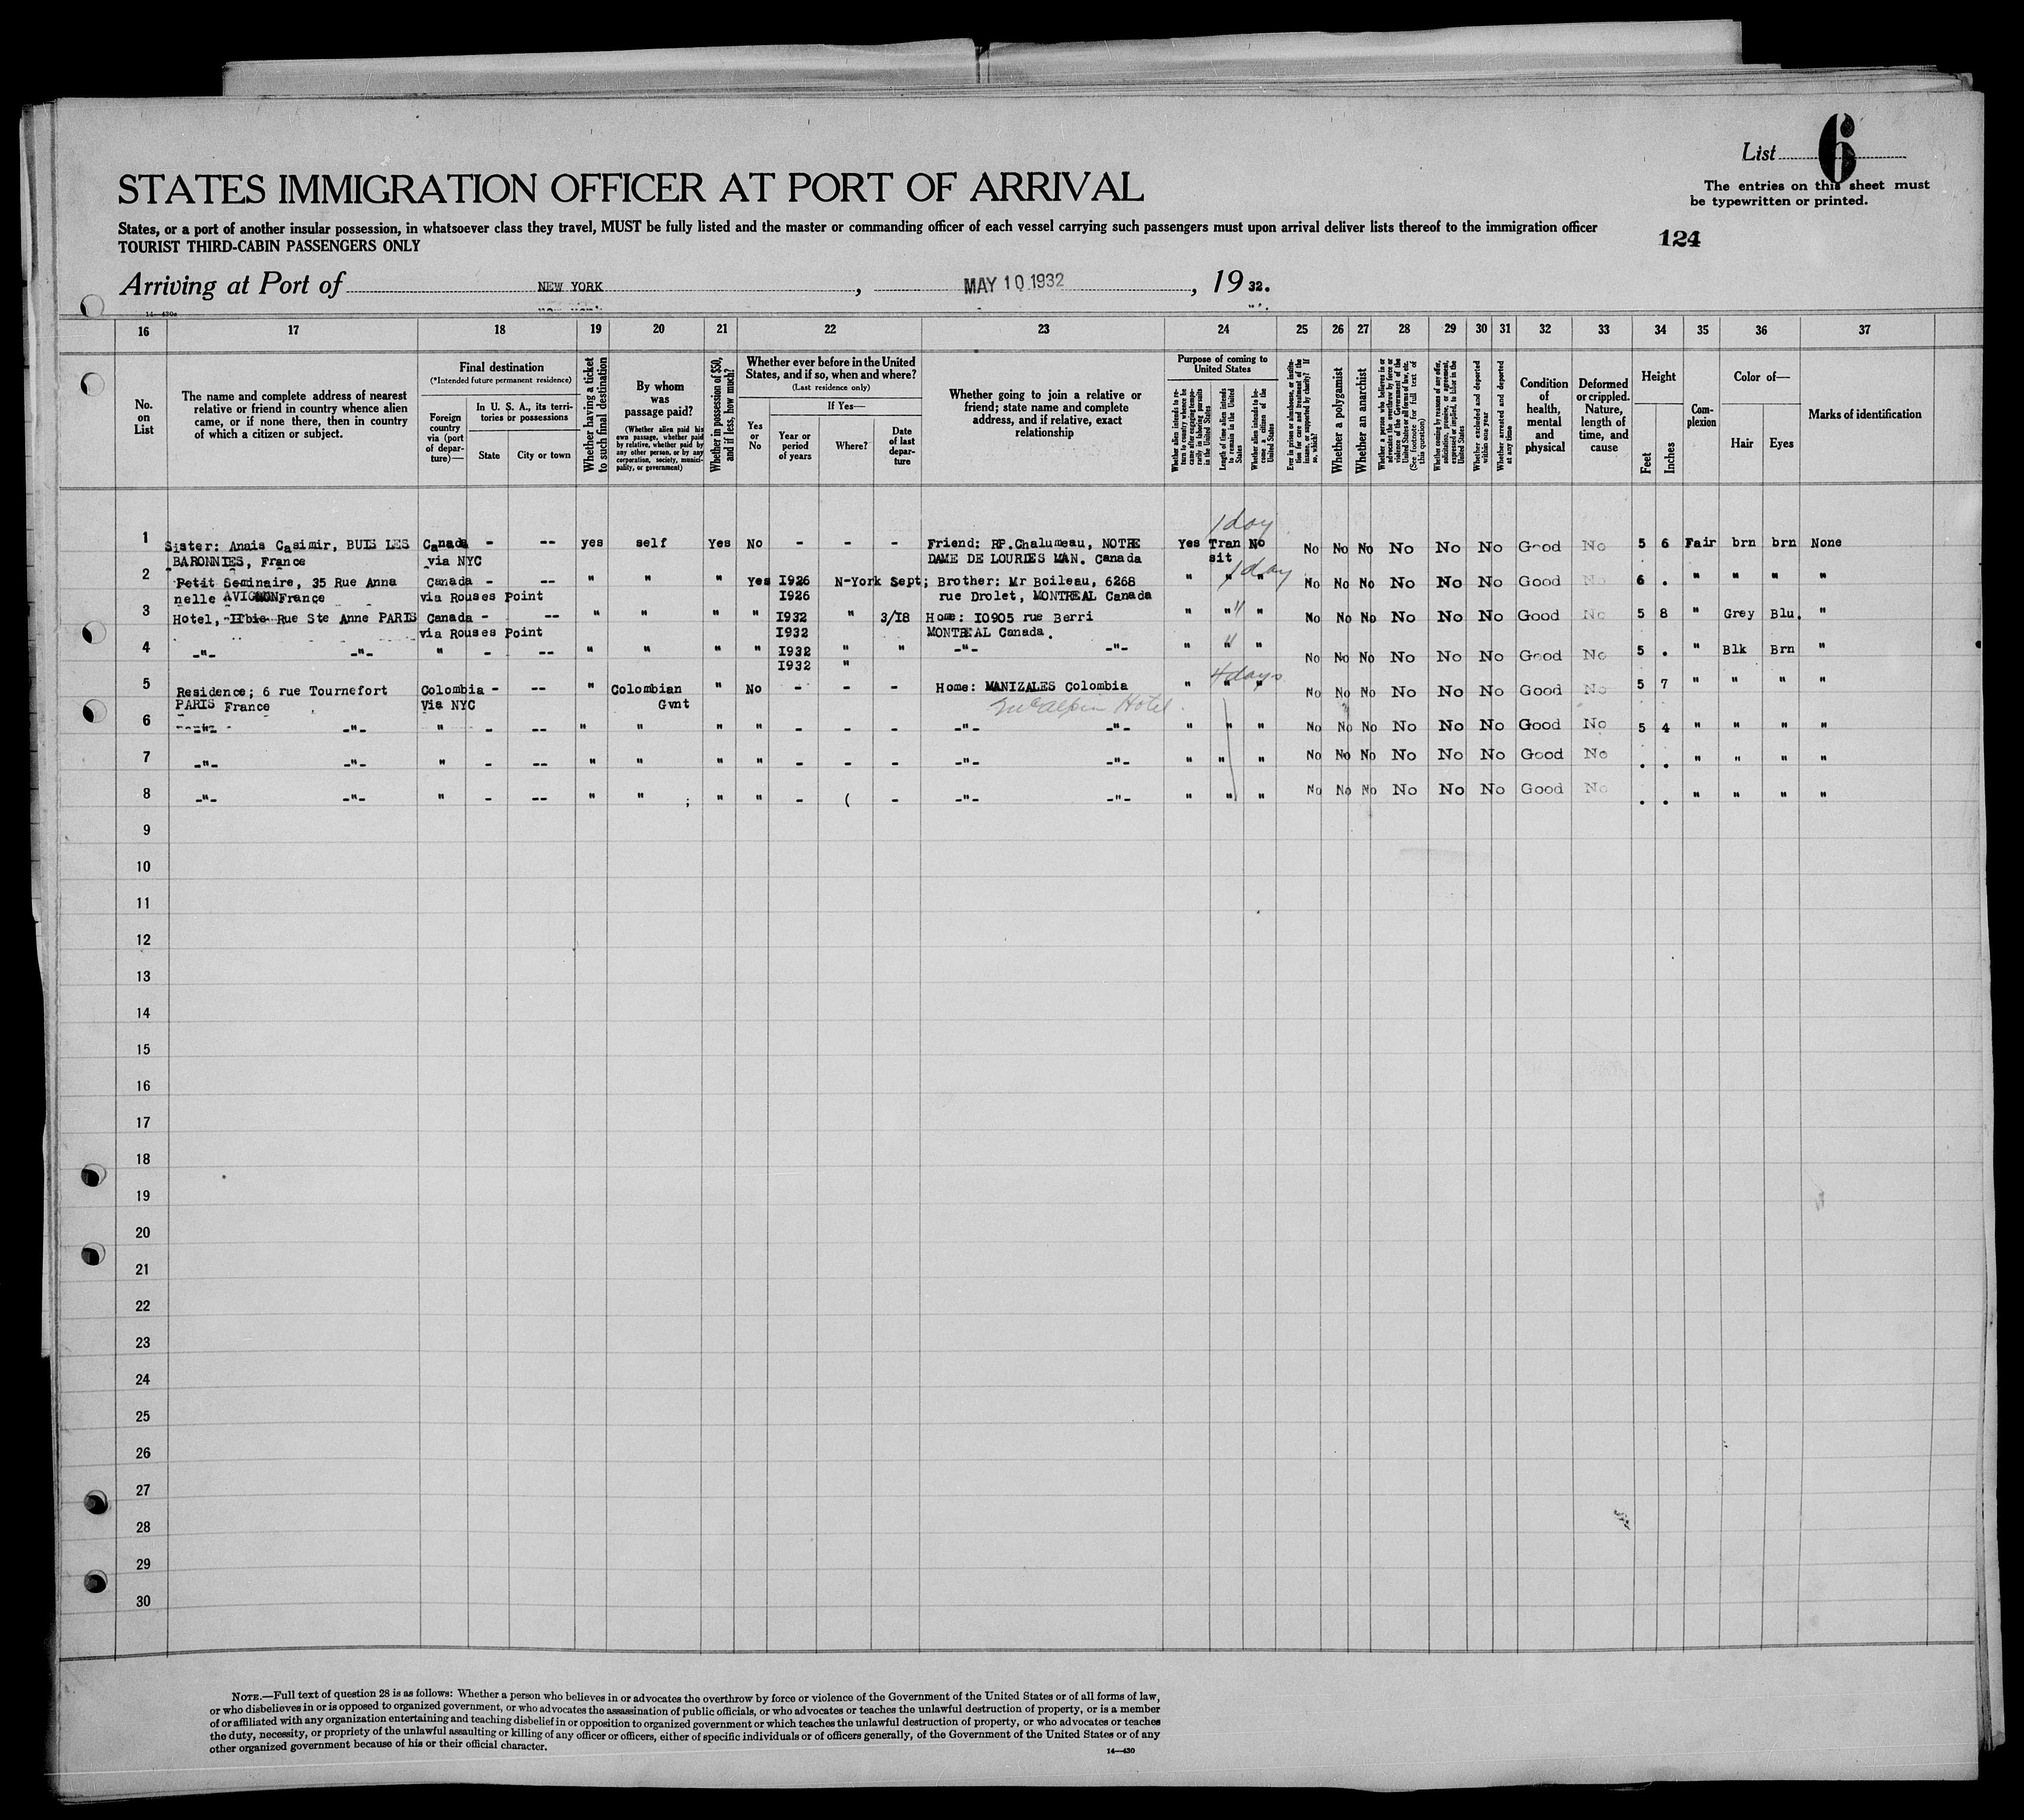 List 6
The entries on this sheet must
be typewritten or printed.
STATES IMMIGRATION OFFICER AT PORT OF ARRIVAL
States, or a port of another insular possession, in whatsoever class they travel, MUST be fully listed and the master or commanding officer of each vessel carrying such passengers must upon arrival deliver lists thereof to the immigration officer
TOURIST THIRD-CABIN PASSENGERS ONLY
124
Arriving at Port of NEW YORK, MAY 10 1932, 19 32.
14—430a
16 17 18 19 20 21 22 23 24 25 26 27 28 29 30 31 32 33 34 35 36 37
No. on List
The name and complete address of nearest relative or friend in country whence alien came, or if none there, then in country of which a citizen or subject.
Final destination
(*Intended future permanent residence)
Foreign country via (port of departure)—
In U. S. A., its territories or possessions
State
City or town
Whether having a ticket to such final destination
By whom was passage paid?
(Whether alien paid his own passage, whether paid by relative, whether paid by any other person, or by any corporation, society, municipality, or government)
Whether in possession of $50, and if less, how much?
Whether ever before in the United States, and if so, when and where?
(Last residence only)
Yes or No
If Yes—
Year or period of years
Where?
Date of last departure
Whether going to join a relative or friend; state name and complete address, and if relative, exact relationship
Purpose of coming to United States
Length of time alien intends to remain in the United States
Whether alien intends to become a citizen of the United States
Whether a polygamist
Whether an anarchist
Whether excluded and deported within one year
Whether arrested and deported at any time
Condition of health, mental and physical
Deformed or crippled. Nature, length of time, and cause
Height
Feet
Inches
Complexion
Color of—
Hair
Eyes
Marks of identification
1 day
1 Sister: Anais Casimir, BUIS LES Canada - -- yes self Yes No - - - Friend: RP.Chalumeau, NOTRE Yes Tran No No No No No No No Good No 5 6 Fair brn brn None
BARONNIES, France via NYC DAME DE LOURIES MAN. Canada sit
1 day
2 Petit Seminaire, 35 Rue Anna Canada - -- " " " Yes I926 N-York Sept; Brother: Mr Boileau, 6268 " " " No No No No No No Good No 6 . " " " "
nelle AVIGNON France via Rouses Point I926 rue Drolet, MONTREAL Canada
3 Hotel, Rue Ste Anne PARIS Canada - -- " " " " I932 " 3/I8 Home: I0905 rue Berri " " " No No No No No No Good No 5 8 " Grey Blu. "
via Rouses Point I932 MONTREAL Canada.
4 -"- -"- " - -- " " " " I932 " " -"- -"- " " " No No No No No No Good No 5 . " Blk Brn "
I932 "
4 days
5 Residence; 6 rue Tournefort Colombia - -- " Colombian " No - - - Home: MANIZALES Colombia " " " No No No No No No Good No 5 7 " " " "
PARIS France Via NYC Gvnt McAlpin Hotel
6 -"- -"- " - -- " " " " - - - -"- -"- " " " No No No No No No Good No 5 4 " " " "
7 -"- -"- " - -- " " " " - - - -"- -"- " " " No No No No No No Good No . . " " " "
8 -"- -"- " - -- " " ; " " - ( - -"- -"- " " " No No No No No No Good No . . " " " "
9
10
11
12
13
14
15
16
17
18
19
20
21
22
23
24
25
26
27
28
29
30
NOTE.—Full text of question 28 is as follows: Whether a person who believes in or advocates the overthrow by force or violence of the Government of the United States or of all forms of law,
or who disbelieves in or is opposed to organized government, or who advocates the assassination of public officials, or who advocates or teaches the unlawful destruction of property, or is a member
of or affiliated with any organization entertaining and teaching disbelief in or opposition to organized government or which teaches the unlawful destruction of property, or who advocates or teaches
the duty, necessity, or propriety of the unlawful assaulting or killing of any officer or officers, either of specific individuals or of officers generally, of the Government of the United States or of any
other organized government because of his or their official character.
14—430